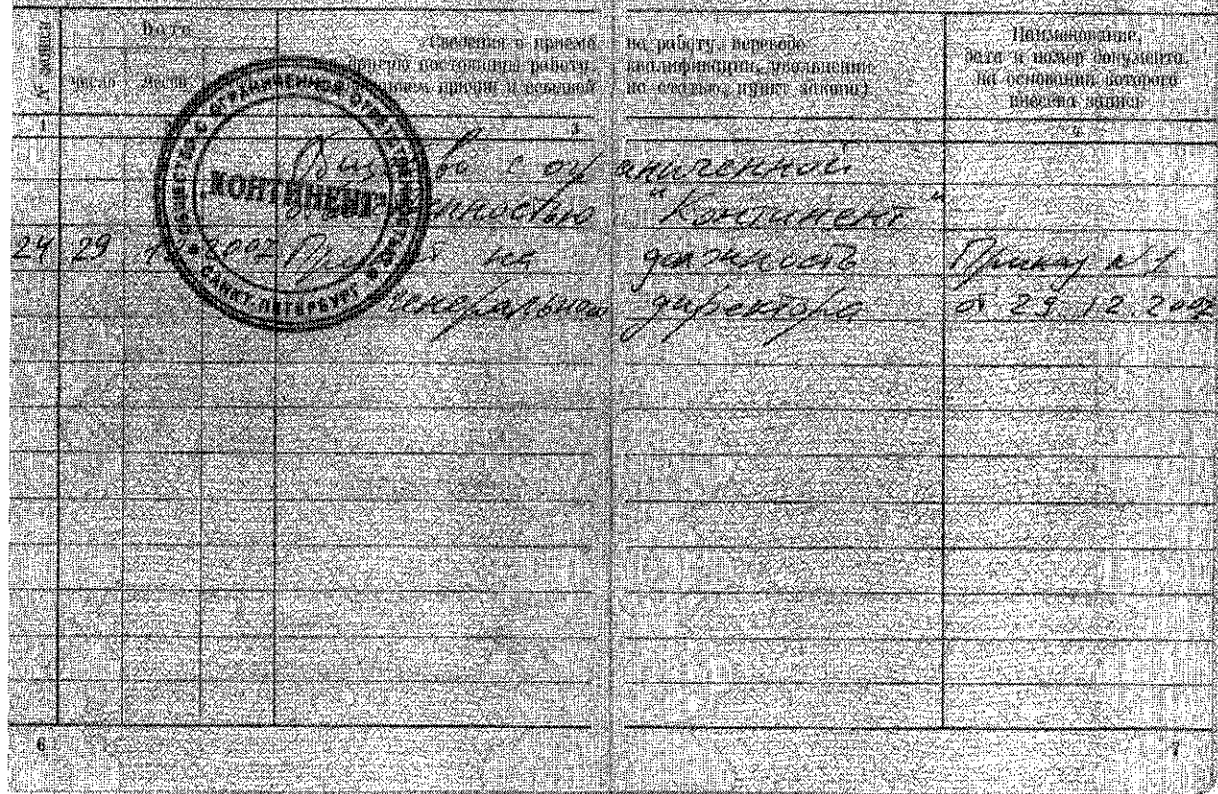 № записи
Дата
Сведения о приеме на работу, переводе
на другую постоянную работу, квалификации, увольнении
причин и ссылкой на статью, пункт закона)
Наименование,
дата и номер документа,
на основании которого
внесена запись
число месяц
1 3 4
Общество с ограниченной
ответственностью "Континент"
24 29 12 2007 Принят на должность Приказ №1
генерального директора от 29.12.2007
ОБЩЕСТВО С ОГРАНИЧЕННОЙ ОТВЕТСТВЕННОСТЬЮ
"КОНТИНЕНТ"
САНКТ-ПЕТЕРБУРГ
6 7